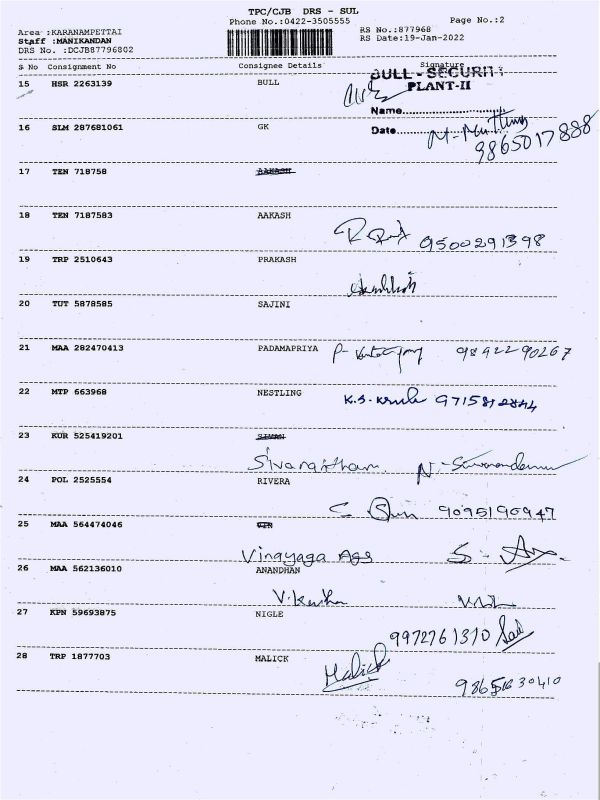 TPC/CJB DRS - SUL
Phone No.:0422-3505555 Page No.:2
Area :KARANAMPETTAI RS No.:877968
Staff :MANIKANDAN RS Date:19-Jan-2022
DRS No. :DCJB87796802
S No Consignment No Consignee Details Signature
15 HSR 2263139 BULL
BULL - SECURITY
PLANT-II
Name
Date
16 SLM 287681061 GK
9865017888
17 TEN 718758 AAKASH
18 TEN 7187583 AAKASH
9500291398
19 TRP 2510643 PRAKASH
20 TUT 5878585 SAJINI
21 MAA 282470413 PADAMAPRIYA
9892290267
22 MTP 663968 NESTLING
K.S.
23 KUR 525419201
24 POL 2525554 RIVERA
9095190947
25 MAA 564474046
Vinayaga Ags
26 MAA 562136010 ANANDHAN
27 KPN 59693875 NIGLE
9972761310
28 TRP 1877703 MALICK
Malick